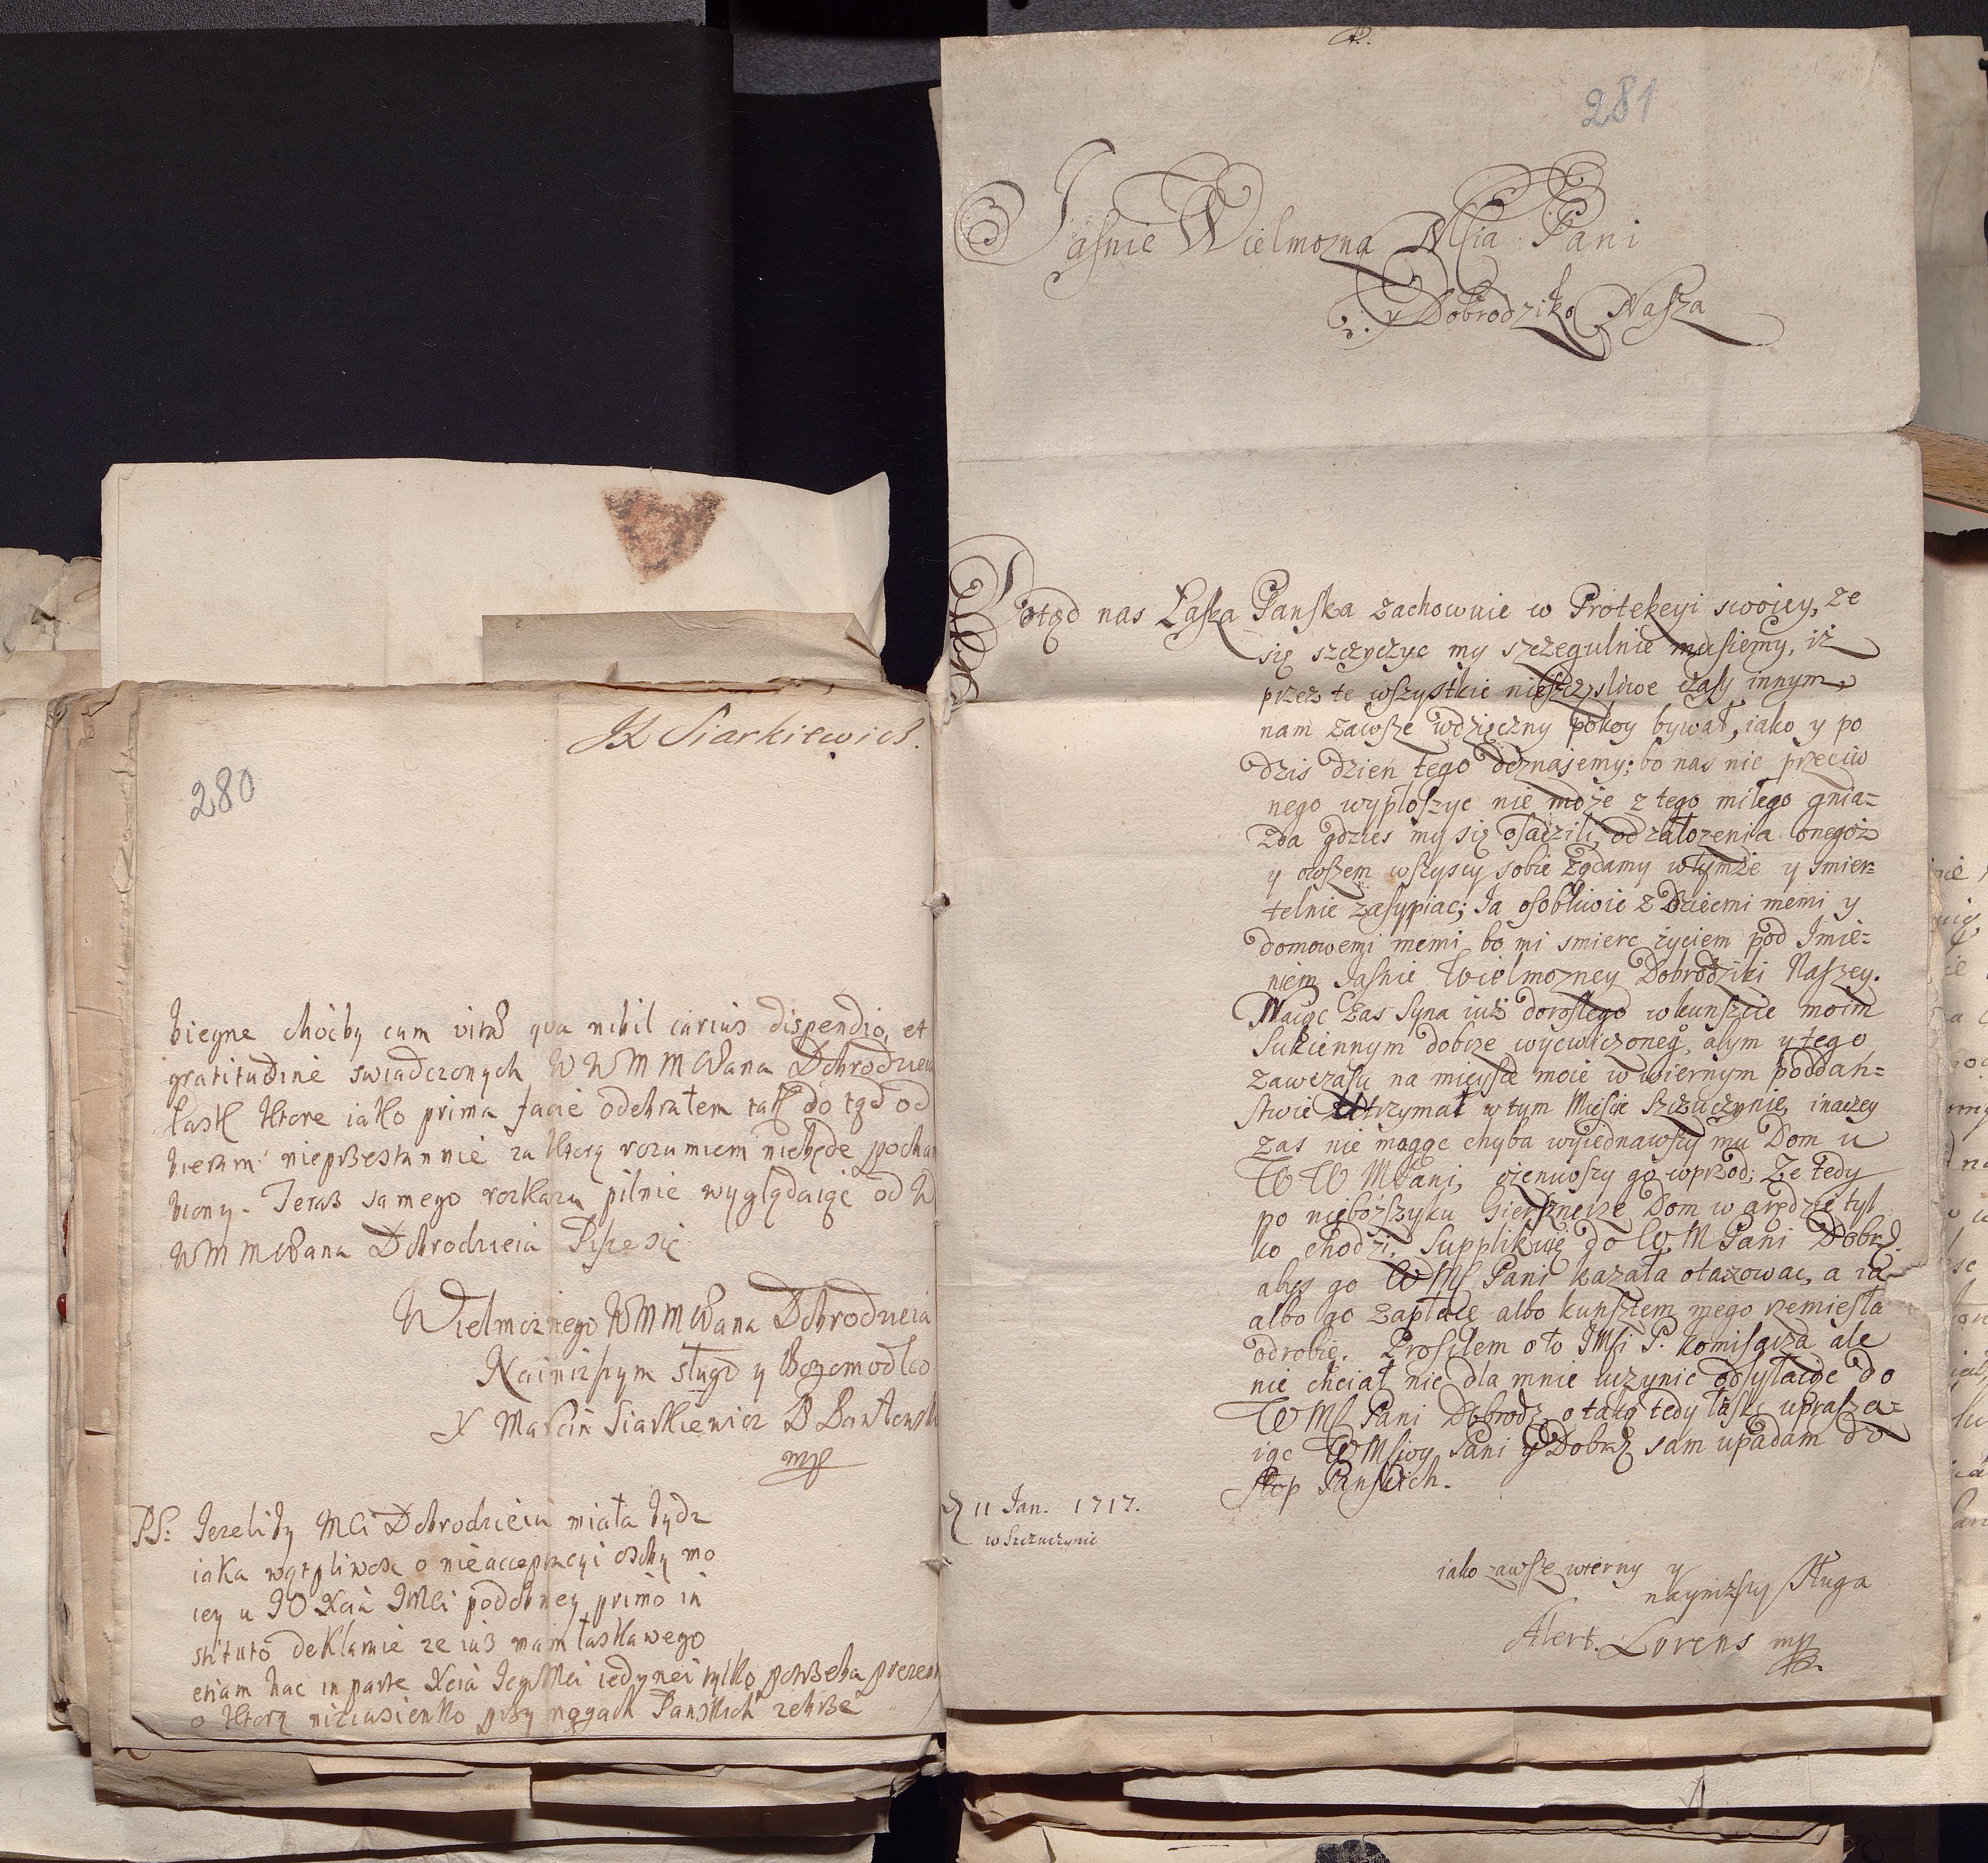 JX Siarkiewicz.
280
biegne choćby cum vita qua nihil carius dispendio, et
gratitudine swiadczonych W W M M Pana Dobrodzieia
łask ktore iako prima facie odebrałem tak do tąd od
bieram nieprzestannie za ktorą rozumiem niebędę
biony. Teraz samego rozkazu pilnie wyglądaiąc od W
WMMPana Dobrodzieia Piszę się
Wielmoznego WMMPana Dobrodzieia
Nainizszym sługą y Bogomodlco
X Marcin Siarkiewicz
mp
PS: Jezeliby Mci Dobrodzieiu miała bydz
iaka wątpliwosc o nieacceptacyi osoby mo
iey u JO Xcia JMci podobney primo in
stituto deklaruie ze iusz mam łaskawego
etiam hac in parte Xcia JegoMci iedynei tylko potrzeba
o ktorą niziusienko przy nogach Panskich zebrze
281
Jasnie Wielmozna Mscia Pani
y Dobrodziko Nasza
Dotąd nas Łaska Panska zachowuie w Protekcyi swoiey, ze
się szczyczyc my szczegulnie musiemy, iż
przez te wszystkie nieszczęsliwe czasy innym
nam zawsze wdzięczny pokoy bywał, iako y po
dzis dzien tego doznajemy; bo nas nic przeciw
nego wypłoszyc nie może z tego miłego gnia=
zda gdzies my się osadzili, od załozenia onegoż
y owszem wszyscy sobie żądamy w tymże y smier=
telnie zasypiac; Ja osobliwie z Dziecmi memi y
domowemi memi, bo mi smierc życiem pod Imie=
niem Jasnie Wielmozney Dobrodziki Naszey.
Maiąc zas Syna iuż dorosłego w kunszcie moim
Sukiennym dobrze wycwiczoneg, abym y tego
zawczasu na mieysce moie w wiernym poddań=
stwie utrzymał w tym Miescie Szczuczynie, inaczey
zas nie mogąc chyba wyiednawszy mu Dom u
W W MPani, ozenwszy go wprzod; Ze tedy
po nieboszczyku Dom w arędzie tyl
ko chodzi, Supplikuię do W M Pani Dobrdz.
abys go WMś Pani kazała otaxowac, a ia
albo go zapłacę albo kunsztem mego rzemiesła
odrobię. Prosiłem o to JMsci P. Komisarza ale
nie chciał nic dla mnie uczynic odsyłaiąc do
WMś Pani Dobrodz, o taką tedy łaskę uprasza=
iąc WMsciwy Pani y Dobrdz sam upadam do
stop Panskich.
11 Jan. 1717.
w Szczuczynie
iako zawsze wierny y
nayniższy Sługa
Alert. Lorens mp